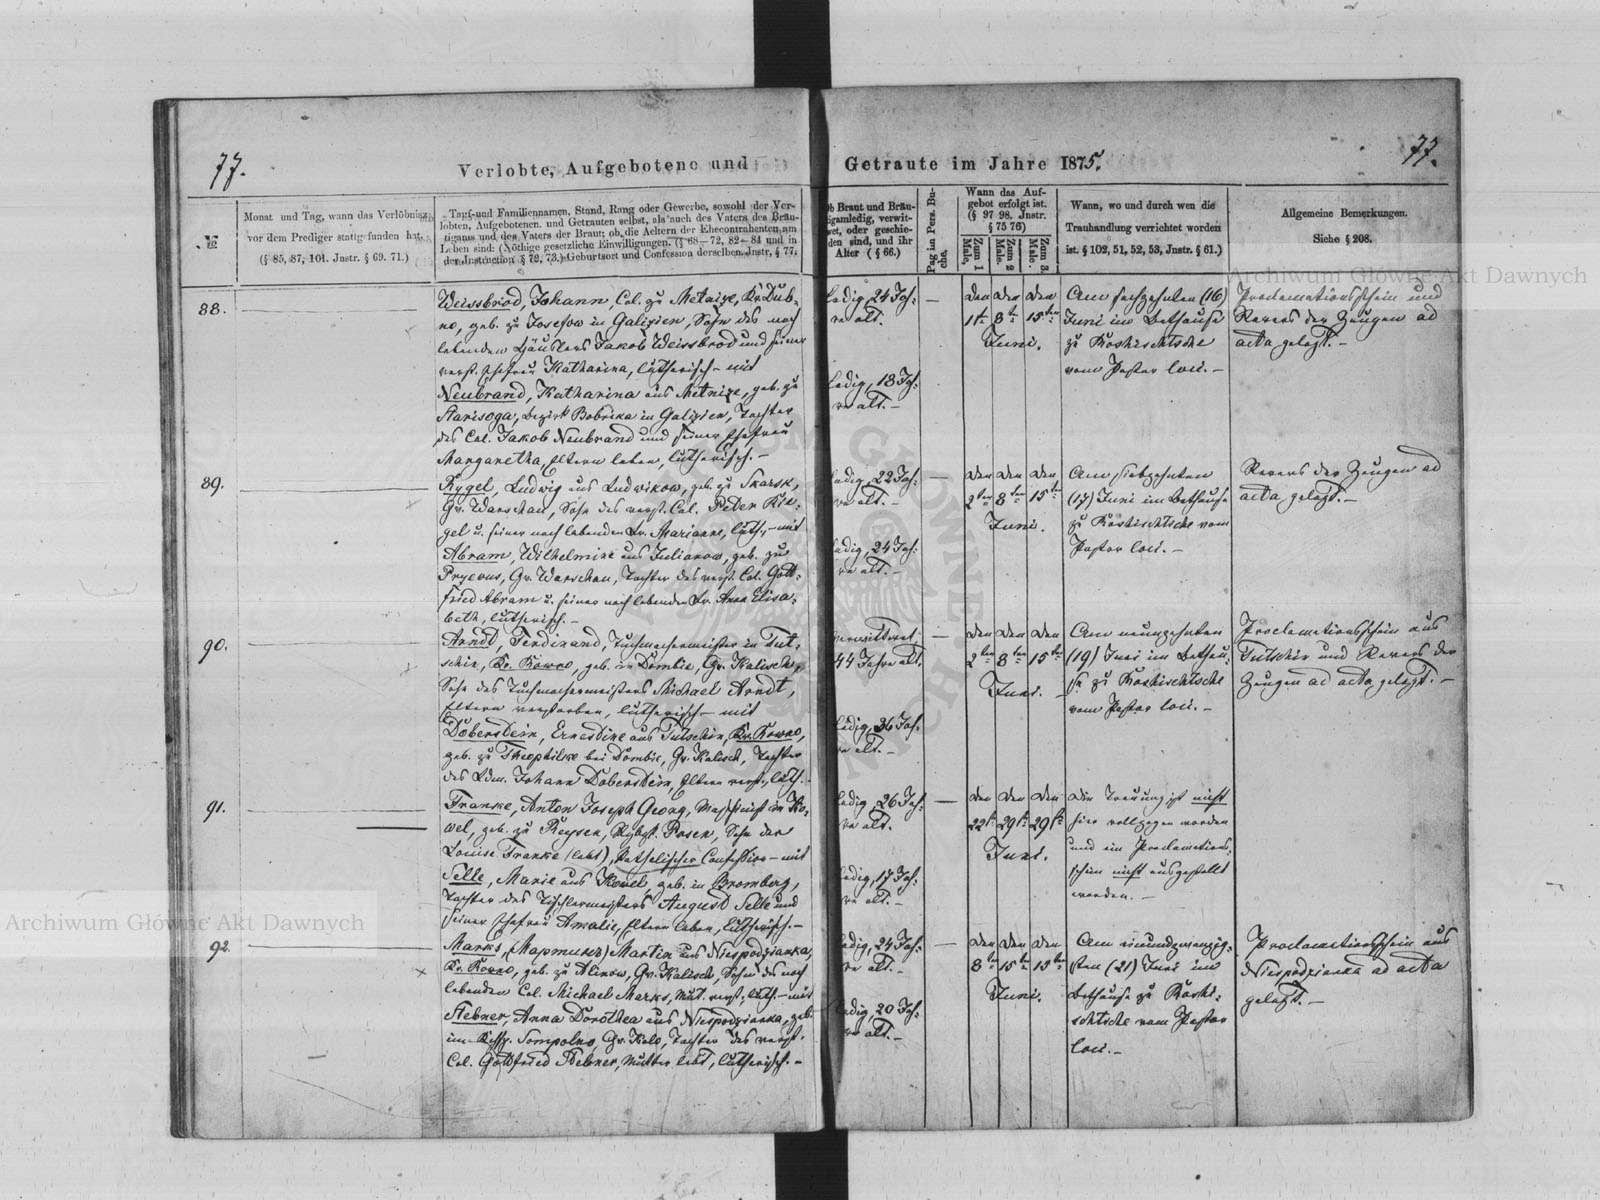 77.
Verlobte, Aufgebotene und
Getraute im Jahre 1875.
77.
№
Monat und Tag, wann das Verlöbniss
vor dem Prediger stattgefunden hat.
(§ 85, 87, 101. Jnstr. § 69. 71.)
Tauf-und Familiennamen, Stand, Rang oder Gewerbe, sowohl der Ver-
lobten, Aufgebotenen und Getrauten selbst, als auch des Vaters des Bräu-
tigams und des Vaters der Braut; ob die Aeltern der Ehecontrahenten am
Leben sind: (Nöthige gesetzliche Einwilligungen. (§ 68—72, 82—84 und in
der Jnstruction § 72, 73.) Geburtsort und Confession derselben. Jnstr. § 77.
Ob Braut und Bräu-
tigam ledig, verwit-
wet, oder geschie-
den sind, und ihr
Alter ( § 66.)
Pag im Pers. Bu-
che.
Wann das Auf-
gebot erfolgt ist.
(§ 97 98. Jnstr.
§ 75 76)
Zum 1 Male.
Zum 2 Male.
Zum 3. Male.
Wann, wo und durch wen die
Trauhandlung verrichtet worden
ist. § 102, 51, 52, 53, Jnstr. § 61.)
Allgemeine Bemerkungen.
Siehe § 208.
88.
Weissbrod, Johann, Col. zu Metnize, Kr. Dub-
no, geb. zu Josefow in Galizien, Sohn des noch
lebenden Häuslers Jakob Weissbrod und seiner
verst. Ehefrau Katharina, lutherisch – mit
Neubrand, Katharina aus Metnize, geb. zu
Starisoga, Bezirk Bobrika in Galizien, Tochter
des Col. Jakob Neubrand und seiner Ehefrau
Margaretha, Eltern leben, lutherisch. –
ledig, 24 Jah-
re alt.
ledig, 18 Jah-
re alt. –
den den den
1t. 8te 15ten
Juni.
Am sechzehnten (16)
Juni im Bethause
zu Roshischtsche
vom Pastor loci. –
Proclamationsschein und
Revers der Zeugen ad
acta gelegt. –
89.
Rygel, Ludwig aus Ludwikow, geb. zu Skarsk,
Gv. Warschau, Sohn des verst. Col. Peter Rie-
gel u. seiner noch lebenden Fr. Marianne, luth., – mit
Abram, Wilhelmine aus Julianow, geb. zu
Gv. Warschau, Tochter des verst. Col. Gott-
fried Abram u. seiner noch lebenden Fr. Anna Elisa-
beth, lutherisch. –
ledig, 22 Jah-
re alt.
ledig, 24 Jah-
re alt. –
den den den
2ten 8ten 15te
Juni.
Am siebzehnten
(17) Juni im Bethause
zu Roshischtsche vom
Pastor loci. –
Revers der Zeugen ad
acta gelegt. –
90.
Arndt, Ferdinand, Tuchmachermeister in Tut-
schin, Kr. Rowno, geb. in Dombie, Gv. Kalisch,
Sohn des Tuchmachermeisters Michael Arndt,
Eltern verstorben, lutherisch – mit
Doberstein, Ernestine aus Tutschin, Kr. Rowno,
geb. zu Theophilke bei Dombie, Gv. Kalisch, Tochter
des Johann Doberstein, Eltern verst., luth. –
verwittwet
44 Jahre alt.
ledig, 36 Jah-
re alt. –
den den den
2te 8ten 15ten
Juni. –
Am neunzehnten
(19) Juni im Bethau-
se zu Roshischtsche
vom Pastor loci. –
Proclamationsschein aus
Tutschin und Revers der
Zeugen ad acta gelegt. –
91.
Franke, Anton Joseph Georg, Maschinist in Ko-
wel, geb. zu Reysen, Rgbzt. Posen, Sohn der
Louise Franke (lebt), katholischer Confession – mit
Selle, Marie aus Kowel, geb. in Bromberg,
Tochter des Tischlermeisters August Selle und
seiner Ehefrau Amalie, Eltern leben, lutherisch. –
ledig, 26 Jah-
re alt.
ledig, 17 Jah-
re alt. –
den den den
22te 29te 29te
Juni.
Die Trauung ist nicht
hier vollzogen worden
und ein Proclamations-
schein nicht ausgestellt
worden. –
92.
Marks, (Мартинъ) Martin aus Niespodzianka,
Kr. Rowno, geb. zu Alinow, Gv. Kalisch, Sohn des noch
lebenden Col. Michael Marks, Mut. verst., luth. – mit
Stebner, Anna Dorothea aus Niespodzianka, geb.
im Sompolno, Gv. Kalo, Tochter des verst.
Col. Gottfried Stebner, Mutter lebt, lutherisch. –
ledig, 24 Jah-
re alt. –
ledig, 20 Jah-
re alt. –
den den den
8te 15te 15ten
Juni.
Am einundzwanzig-
sten (21) Juni im
Bethause zu Roshi-
schtsche vom Pastor
loci. –
Proclamationsschein aus
Niespodzianka ad acta
gelegt. –
Archiwum Główne Akt Dawnych
Archiwum Główne Akt Dawnych